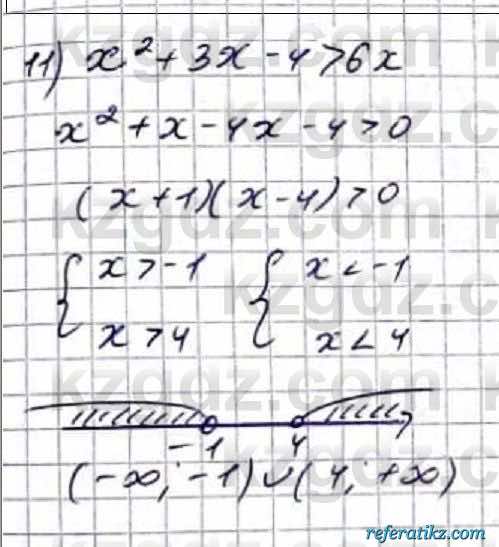 11) x² + 3x - 4 > 6x
x² + x - 4x - 4 > 0
(x + 1)(x - 4) > 0
{ x > -1 { x < -1
x > 4 x < 4
-1 4
(-∞; -1) ∪ (4; +∞)
kzgdz.com
referatikz.com